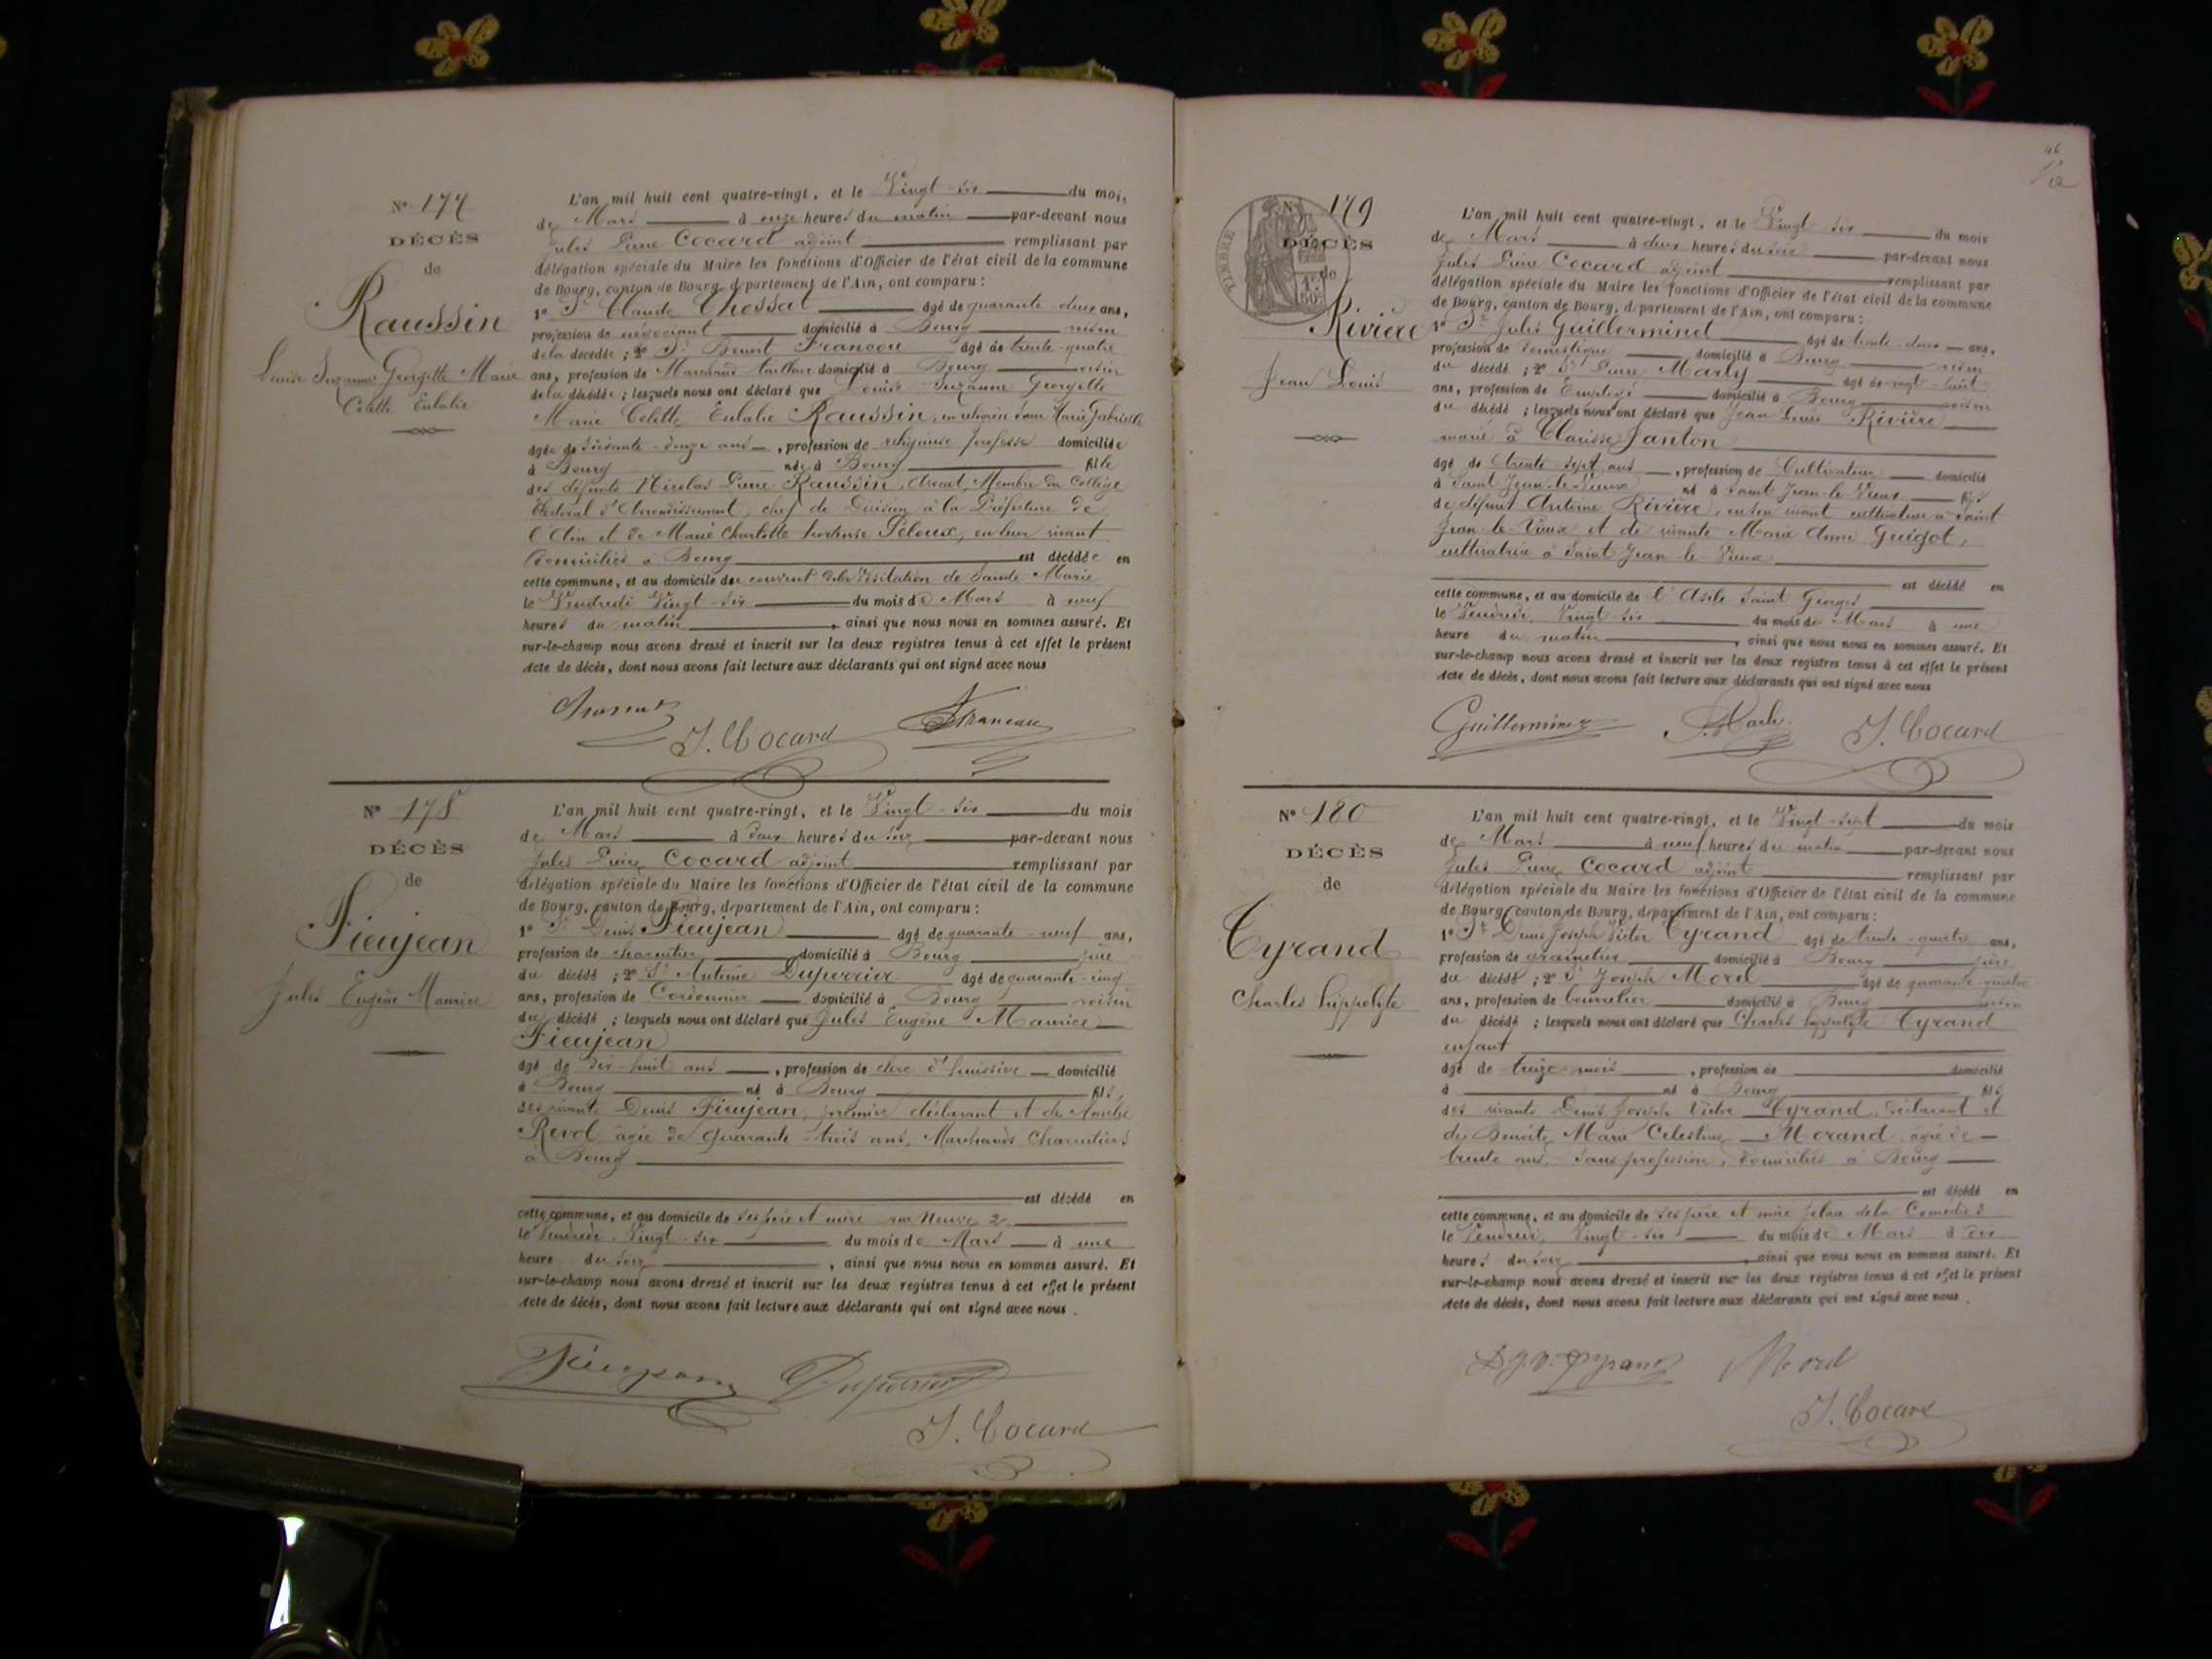 N° 177
DÉCÈS
de
Raussin
Louise Suzanne Georgette Marie
Colette Eulalie
L'an mil huit cent quatre-vingt, et le Vingt-six du mois
de Mars à onze heures du matin par-devant nous
Jules Pierre Cocard adjoint remplissant par
délégation spéciale du Maire les fonctions d'Officier de l'état civil de la commune
de Bourg, canton de Bourg, département de l'Ain, ont comparu :
1° Sr Claude Chossat âgé de quarante-deux ans,
profession de négociant domicilié à Bourg voisin
de la décédée ; 2° Sr Benoit Francou âgé de trente-quatre
ans, profession de Marchand tailleur domicilié à Bourg voisin
de la décédée ; lesquels nous ont déclaré que Louise Suzanne Georgette
Marie Colette Eulalie Raussin, en religion Sœur Marie Gabrielle
âgée de soixante-douze ans, profession de religieuse professe domiciliée
à Bourg née à Bourg fille
des défunts Nicolas Pierre Raussin, Avocat, Membre du Collège
électoral d'Arrondissement, chef de Division à la Préfecture de
l'Ain et de Marie Charlotte hortense Péloux, en leur vivant
domiciliés à Bourg est décédée en
cette commune, et au domicile du couvent de la Visitation de Sainte Marie
le Vendredi Vingt-six du mois de Mars à neuf
heures du matin, ainsi que nous nous en sommes assuré. Et
sur-le-champ nous avons dressé et inscrit sur les deux registres tenus à cet effet le présent
Acte de décès, dont nous avons fait lecture aux déclarants qui ont signé avec nous
Chossat
J. Cocard
N° 178
DÉCÈS
de
Fieujean
Jules Eugène Maurice
L'an mil huit cent quatre-vingt, et le Vingt-six du mois
de Mars à deux heures du soir par-devant nous
Jules Pierre Cocard adjoint remplissant par
délégation spéciale du Maire les fonctions d'Officier de l'état civil de la commune
de Bourg, canton de Bourg, département de l'Ain, ont comparu :
1° Sr Denis Fieujean âgé de quarante-neuf ans,
profession de charcutier domicilié à Bourg père
du décédé ; 2° Sr Antoine Duperrier âgé de quarante-cinq
ans, profession de Cordonnier domicilié à Bourg voisin
du décédé ; lesquels nous ont déclaré que Jules Eugène Maurice
Fieujean
âgé de dix-huit ans, profession de clerc d'huissier domicilié
à Bourg né à Bourg fils,
des vivants Denis Fieujean, premier déclarant et de Amélie
Revol âgée de quarante-trois ans, Marchands Charcutiers
à Bourg
est décédé en
cette commune, et au domicile de ses père et mère rue Neuve 2
le Vendredi Vingt-six du mois de Mars à une
heure du soir, ainsi que nous nous en sommes assuré. Et
sur-le-champ nous avons dressé et inscrit sur les deux registres tenus à cet effet le présent
Acte de décès, dont nous avons fait lecture aux déclarants qui ont signé avec nous.
Fieujean Duperrier
J. Cocard
46
N° 179
TIMBRE
1 F. 50 C.
DÉCÈS
de
Rivière
Jean Louis
L'an mil huit cent quatre-vingt, et le Vingt-six du mois
de Mars à deux heures du soir par-devant nous
Jules Pierre Cocard adjoint remplissant par
délégation spéciale du Maire les fonctions d'Officier de l'état civil de la commune
de Bourg, canton de Bourg, département de l'Ain, ont comparu :
1° Sr Jules Guillerminet âgé de trente-deux ans,
profession de domestique domicilié à Bourg voisin
du décédé ; 2° Sr Pierre Marly âgé de vingt-huit
ans, profession de Employé domicilié à Bourg voisin
du décédé ; lesquels nous ont déclaré que Jean Louis Rivière
marié à Clarisse Janton
âgé de trente-sept ans, profession de Cultivateur domicilié
à Saint Jean-le-Vieux né à Saint Jean-le-Vieux fils
de défunt Antoine Rivière, en son vivant cultivateur à Saint
Jean-le-Vieux et de vivante Marie Anne Guigot,
cultivatrice à Saint Jean-le-Vieux
est décédé en
cette commune, et au domicile de l'Asile Saint Georges
le Vendredi Vingt-six du mois de Mars à une
heure du matin, ainsi que nous nous en sommes assuré. Et
sur-le-champ nous avons dressé et inscrit sur les deux registres tenus à cet effet le présent
Acte de décès, dont nous avons fait lecture aux déclarants qui ont signé avec nous
Guillerminet J. Cocard
N° 180
DÉCÈS
de
Tyrand
Charles hippolyte
L'an mil huit cent quatre-vingt, et le Vingt-sept du mois
de Mars à neuf heures du matin par-devant nous
Jules Pierre Cocard adjoint remplissant par
délégation spéciale du Maire les fonctions d'Officier de l'état civil de la commune
de Bourg canton de Bourg, département de l'Ain, ont comparu :
1° Sr Denis Joseph Victor Tyrand âgé de trente-quatre ans,
profession de grainetier domicilié à Bourg père
du décédé ; 2° Sr Joseph Morel âgé de quarante-quatre
ans, profession de bourrelier domicilié à Bourg voisin
du décédé ; lesquels nous ont déclaré que Charles hippolyte Tyrand
enfant
âgé de treize mois, profession de domicilié
à né à Bourg fils
des vivants Denis Joseph Victor Tyrand, déclarant et
de Benoîte Marie Célestine Morand, âgée de
trente ans, sans profession, domiciliés à Bourg
est décédé en
cette commune, et au domicile de ses père et mère place de la Comédie 2
le Vendredi Vingt-six du mois de Mars à dix
heures du soir, ainsi que nous nous en sommes assuré. Et
sur-le-champ nous avons dressé et inscrit sur les deux registres tenus à cet effet le présent
Acte de décès, dont nous avons fait lecture aux déclarants qui ont signé avec nous.
D. J. V. Tyrand Morel
J. Cocard